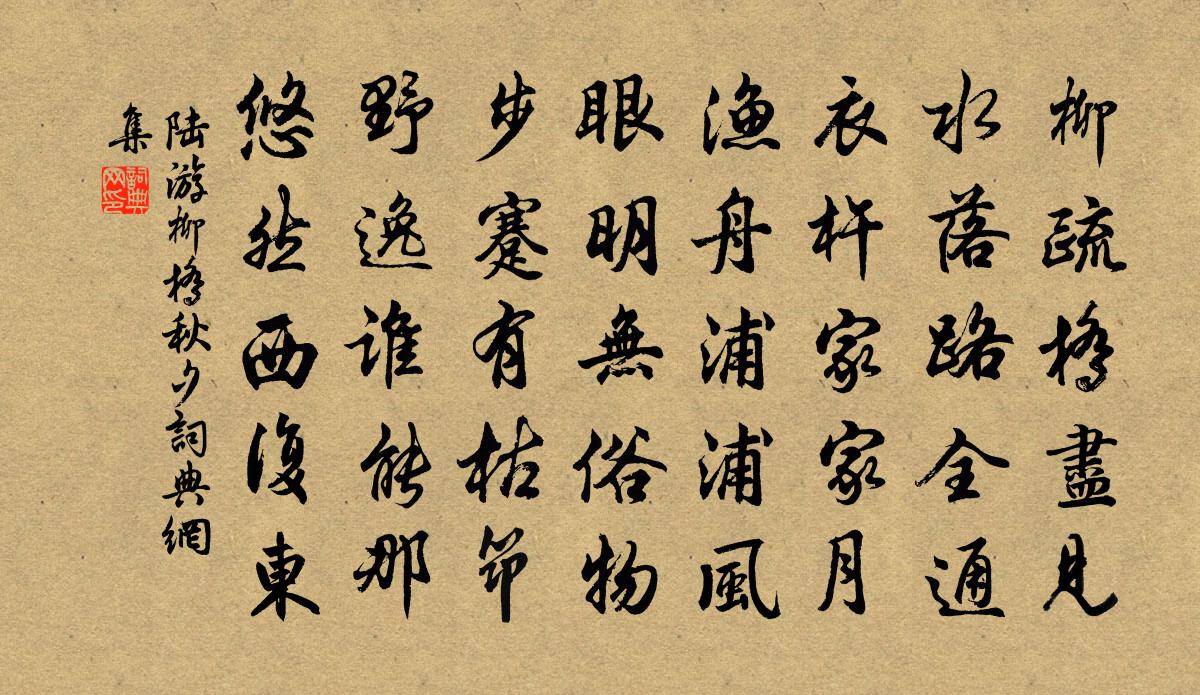 柳疏橋盡見
水落路全通
衣杵家家月
漁舟浦浦風
眼明無俗物
步蹇有枯筇
野逸誰能那
悠然西復東
陸游柳橋秋夕詞典網
集
詞典
网印